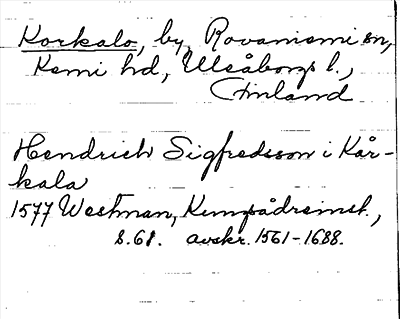 Korkalo, by, Rovaniemi sn,
Kemi hd, Uleåborgs l.,
Finland
Hendrich Sigfredsson i Kår-
kala
1577 Westman,
s. 61. avskr. 1561-1688.